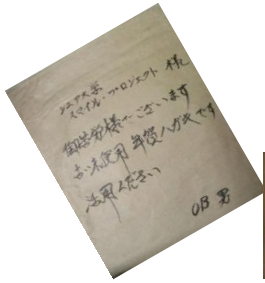 シニア大学
スマイル・プロジェクト 様
御苦労様でございます
お未使用 年賀ハガキです
活用ください
OB 男